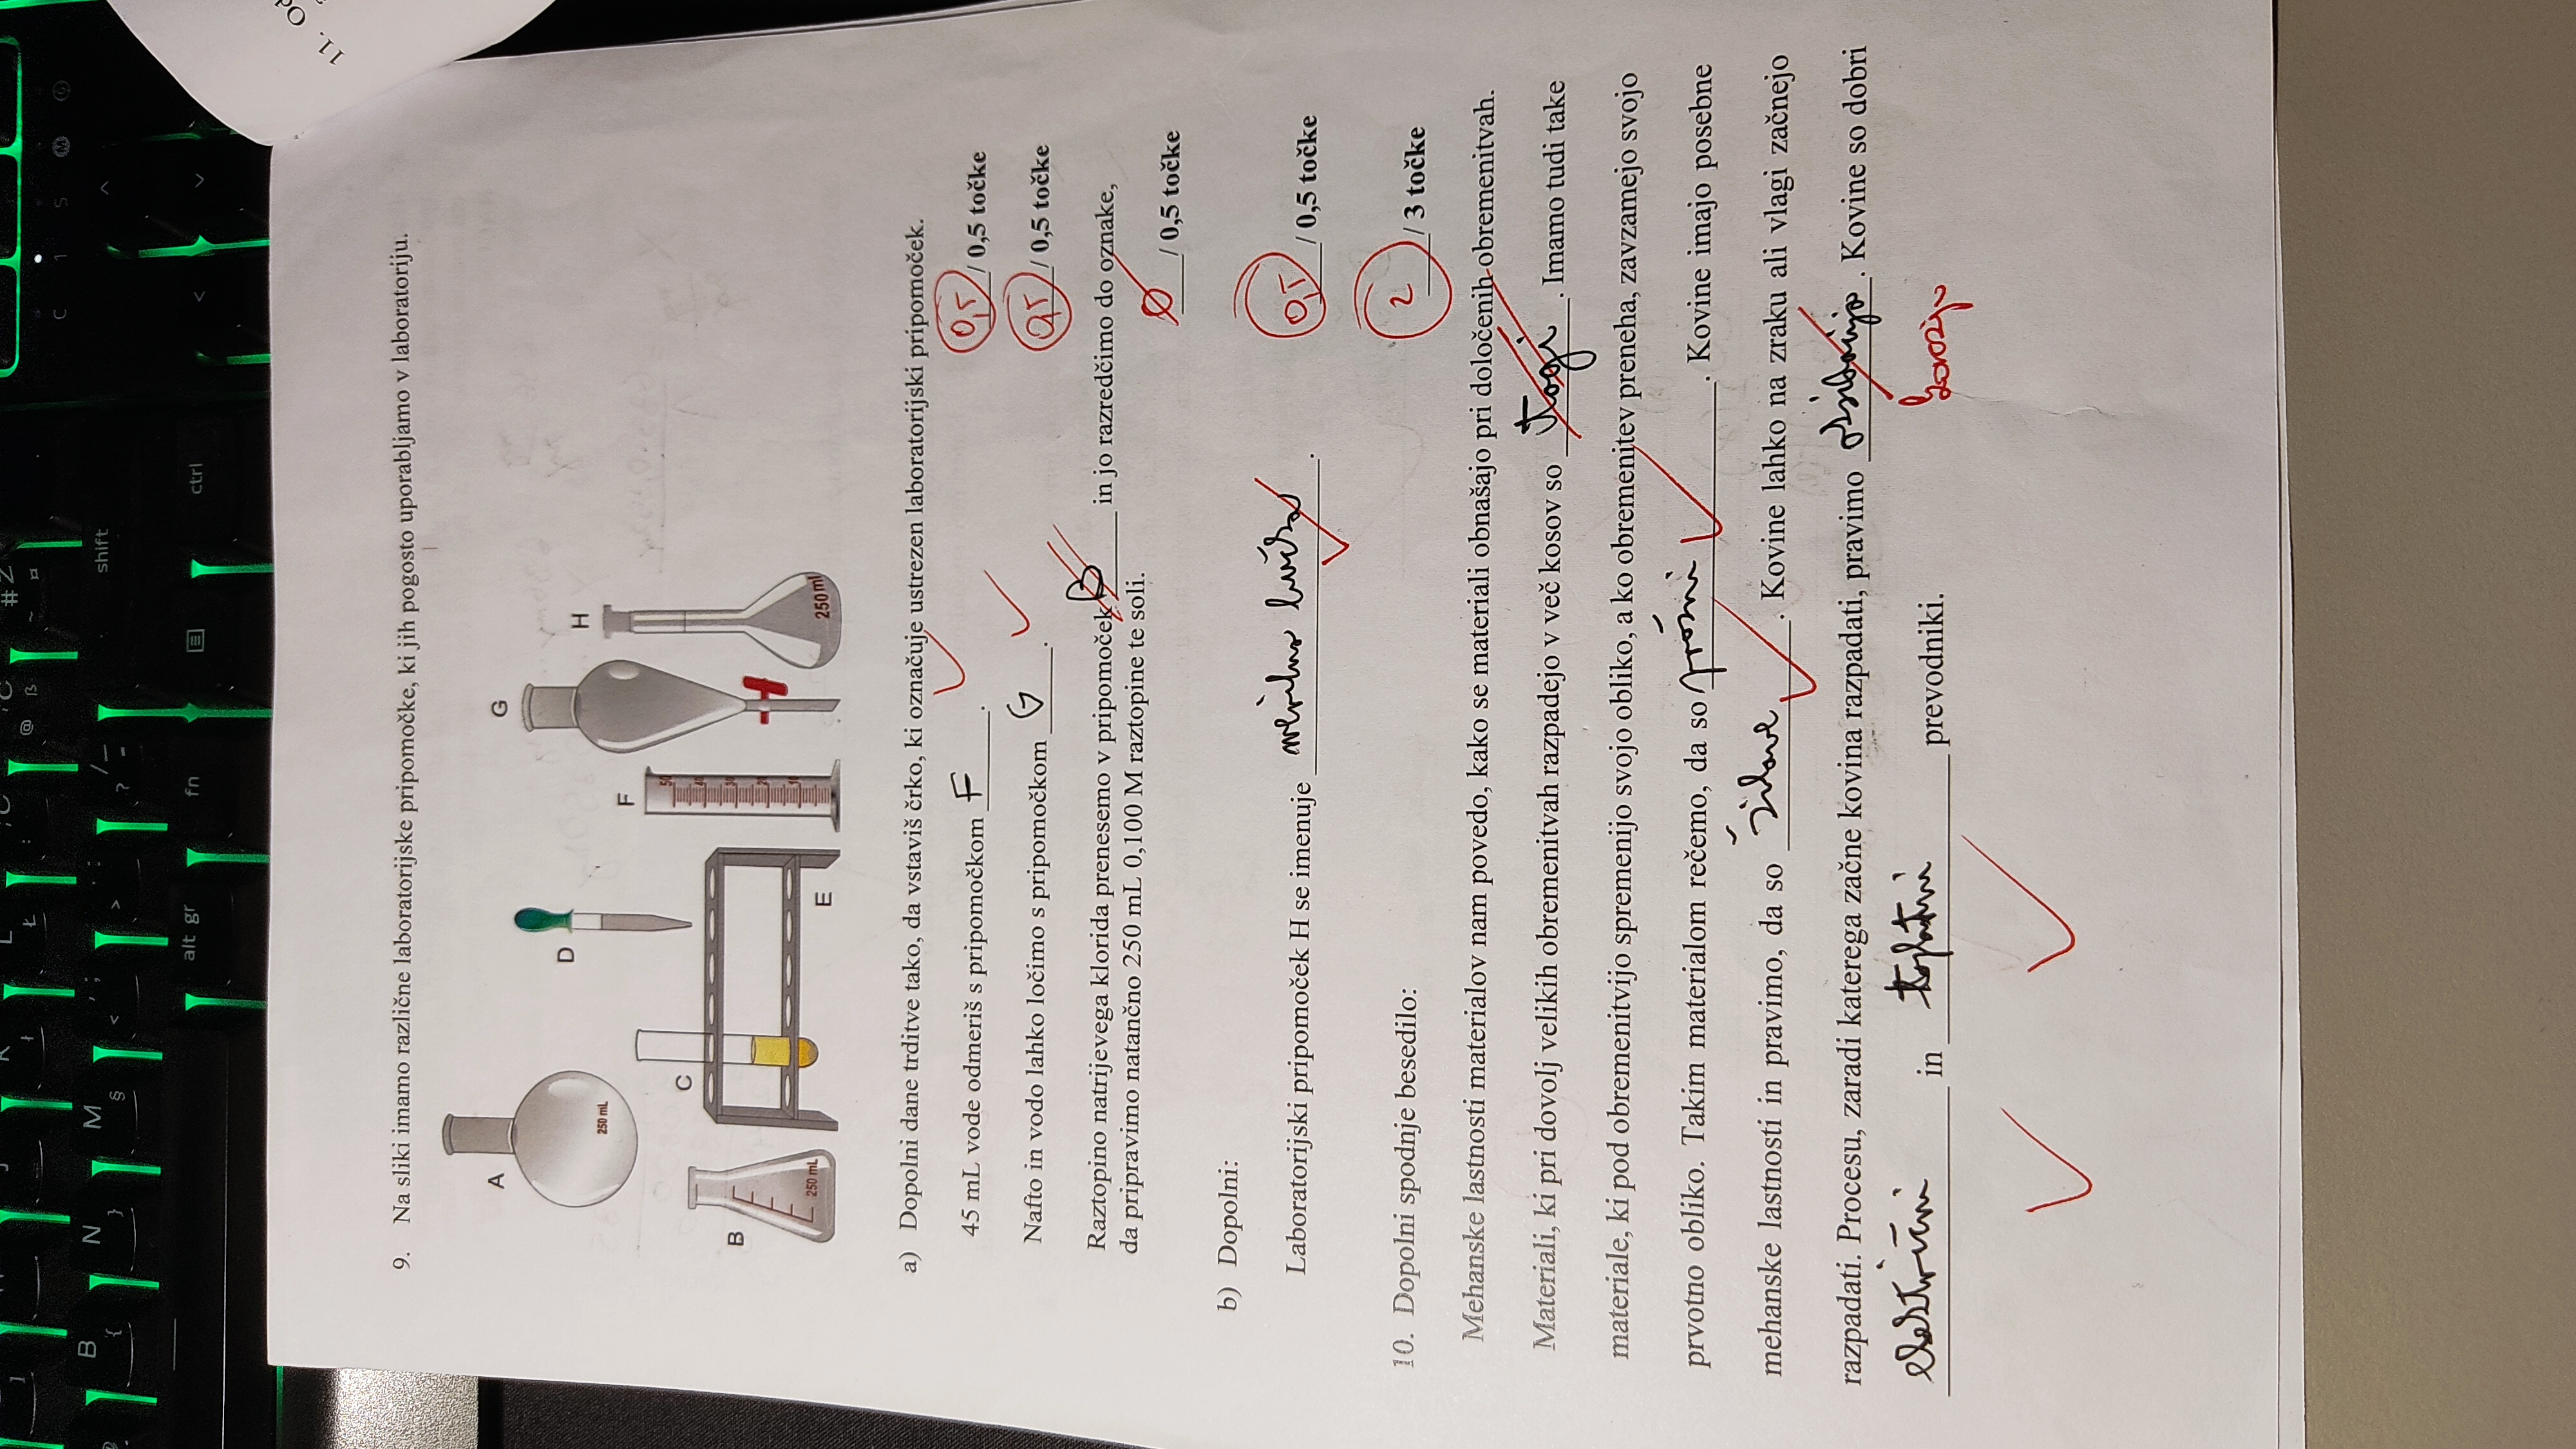 B { N } M § < , ; > . : ? / _ - shift
alt gr fn ctrl < v
C 1 S M
11. Od
9. Na sliki imamo različne laboratorijske pripomočke, ki jih pogosto uporabljamo v laboratoriju.
A
G
D
H
250 mL
F
C
50
40
30
B
20
10
250 mL
E
250 ml
a) Dopolni dane trditve tako, da vstaviš črko, ki označuje ustrezen laboratorijski pripomoček.
45 mL vode odmeriš s pripomočkom F. 0,5 / 0,5 točke
Nafto in vodo lahko ločimo s pripomočkom G. 0,5 / 0,5 točke
Raztopino natrijevega klorida prenesemo v pripomoček B in jo razredčimo do oznake,
da pripravimo natančno 250 mL 0,100 M raztopine te soli.
0 / 0,5 točke
b) Dopolni:
Laboratorijski pripomoček H se imenuje merilna bučka. 0,5 / 0,5 točke
10. Dopolni spodnje besedilo: 2 / 3 točke
Mehanske lastnosti materialov nam povedo, kako se materiali obnašajo pri določenih obremenitvah.
Materiali, ki pri dovolj velikih obremenitvah razpadejo v več kosov so togi. Imamo tudi take
materiale, ki pod obremenitvijo spremenijo svojo obliko, a ko obremenitev preneha, zavzamejo svojo
prvotno obliko. Takim materialom rečemo, da so prožni. Kovine imajo posebne
mehanske lastnosti in pravimo, da so žilave. Kovine lahko na zraku ali vlagi začnejo
razpadati. Procesu, zaradi katerega začne kovina razpadati, pravimo oksidacija. Kovine so dobri
električni in toplotni prevodniki.
korozija